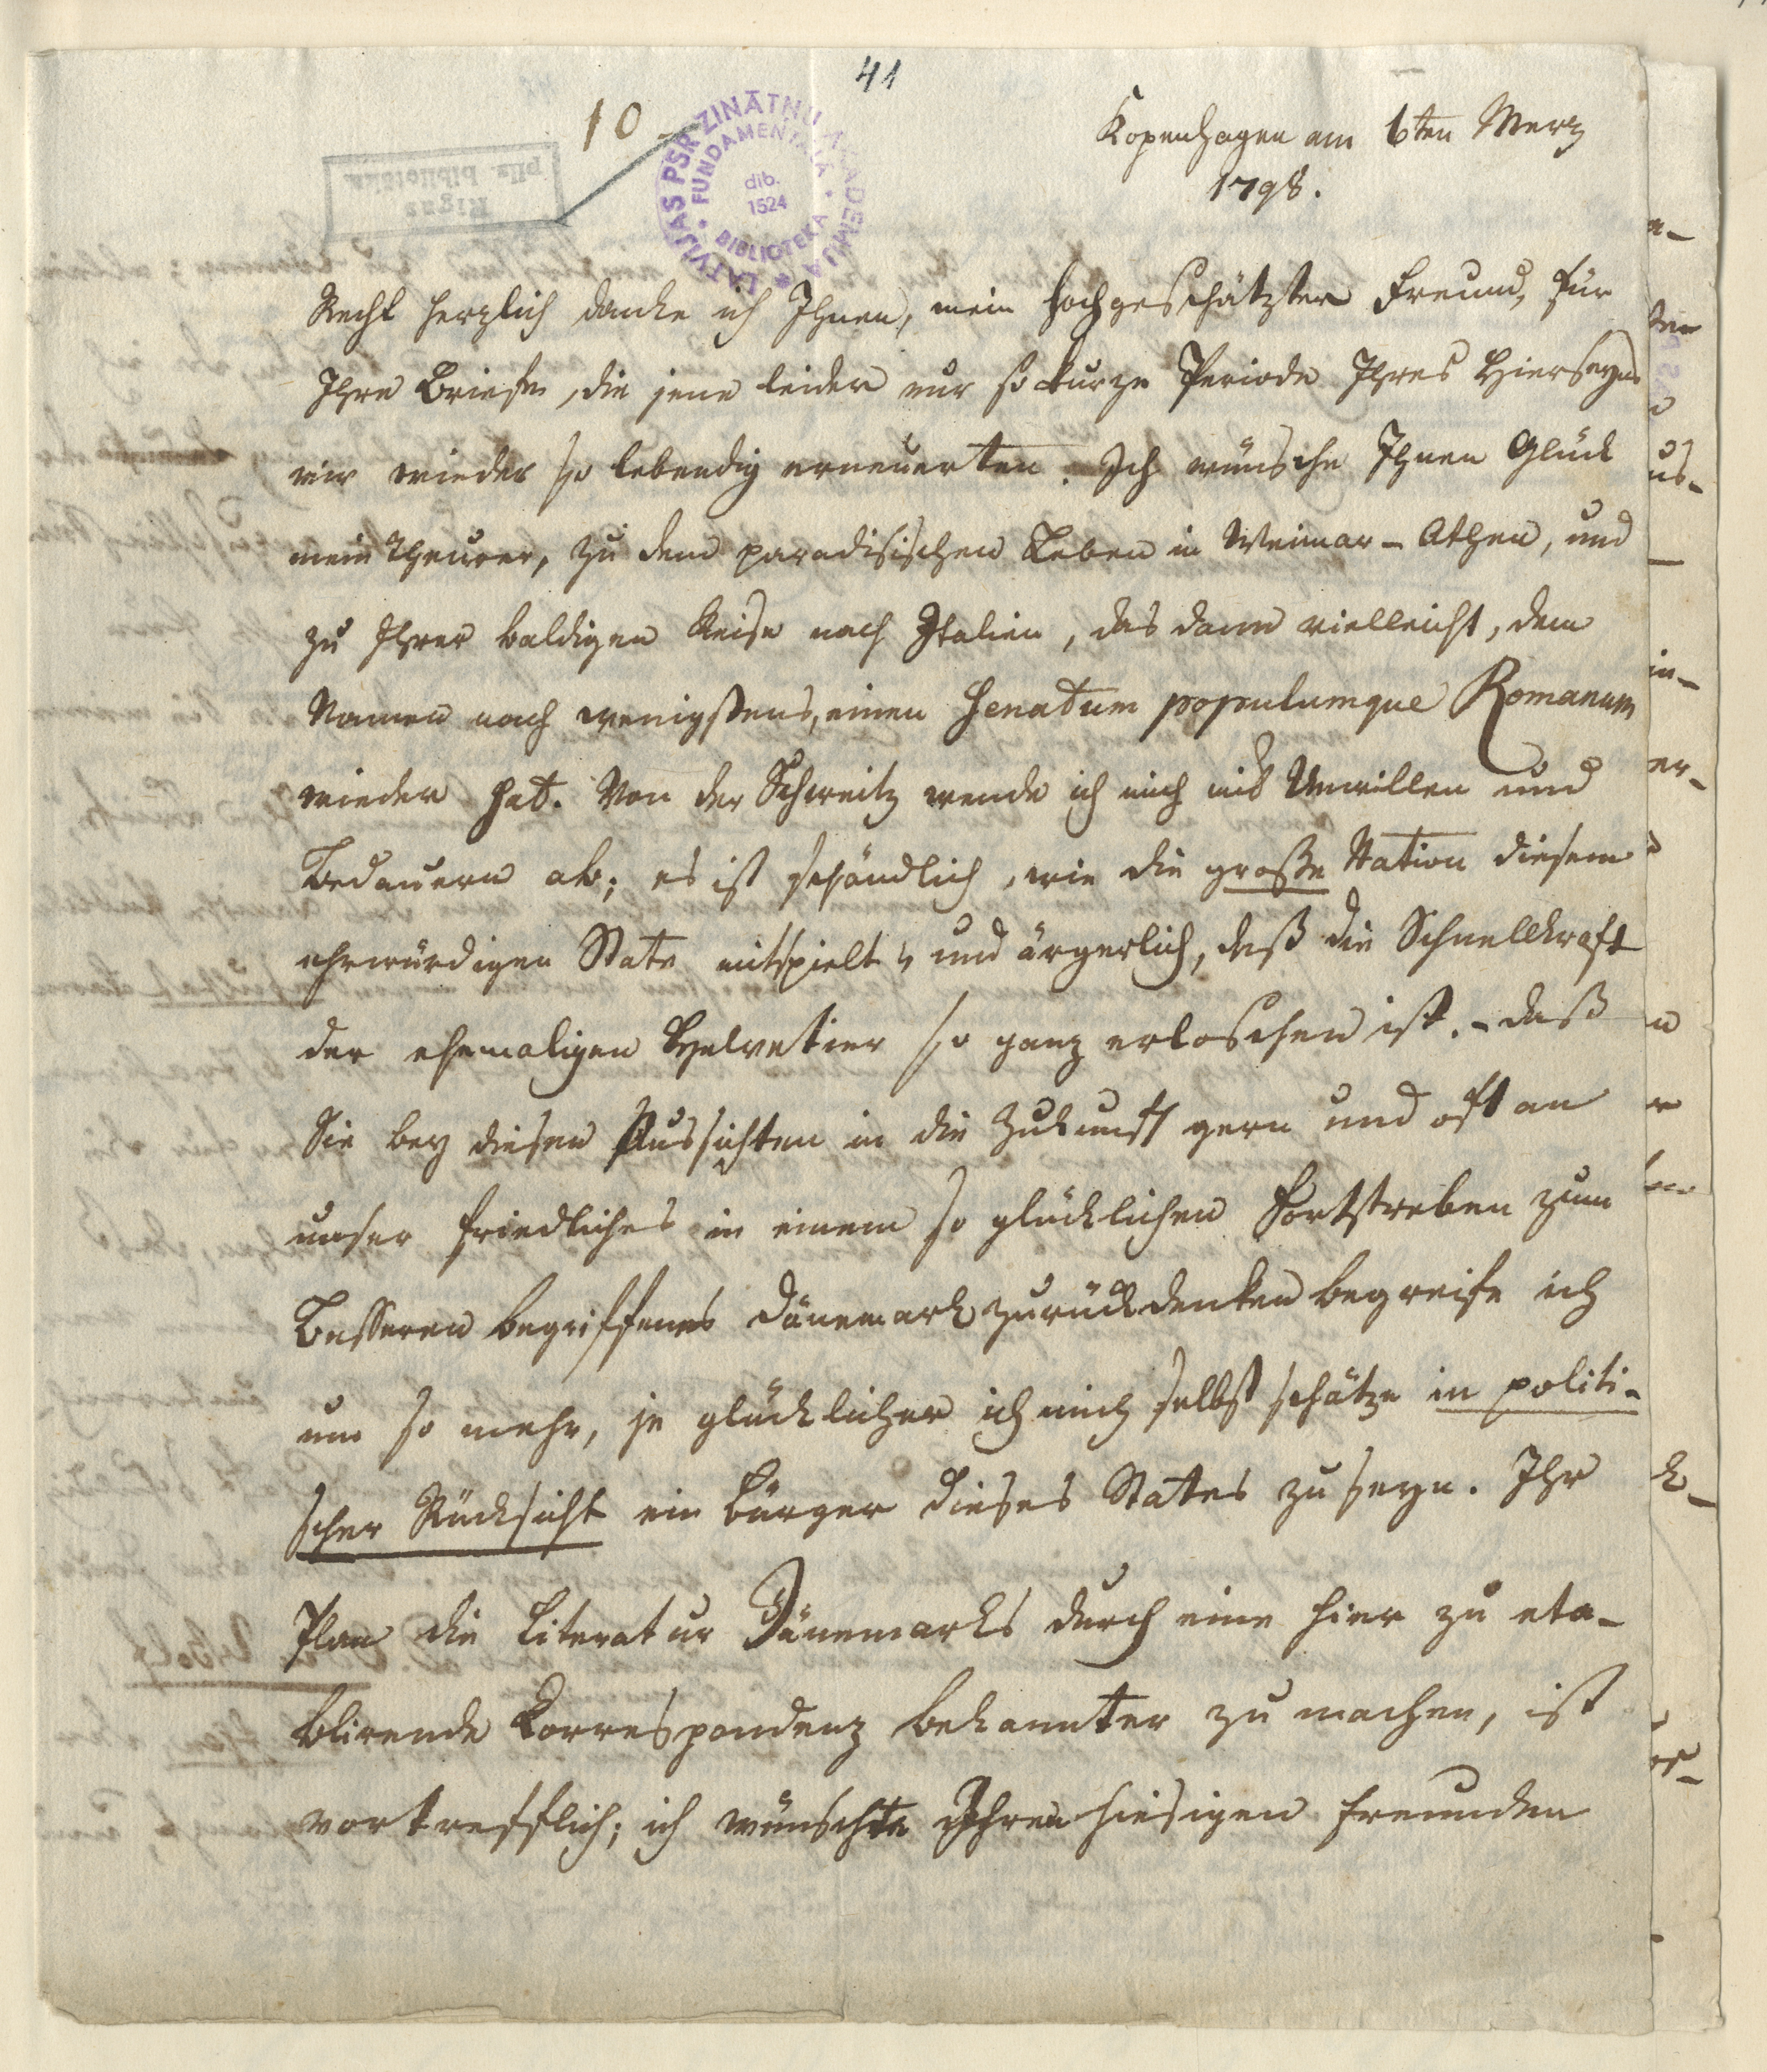 41
10
LATVIJAS PSR ZINĀTŅU AKADEMIJA
FUNDAMENTĀLĀ BIBLIOTEKA
dib.
1524
Rigas
pils. bibliotēka
Kopenhagen am 6ten Merz
1798.
Recht herzlich danke ich Ihnen, mein hochgeschätzter Freund, für
Ihre Briefe, die jene leider nur so kurze Periode Ihres Hierseyns
mir wieder so lebendig erneuerten. Ich wünsche Ihnen Glück
mein Theurer, zu dem paradisischen Leben in Weimar-Athen, und
zu Ihrer baldigen Reise nach Italien, das dann vielleicht, dem
Namen nach wenigstens, einen Senatum populumque Romanum
wieder hat. Von der Schweitz wende ich mich mit Unwillen und
Bedauern ab; es ist schändlich, wie die große Nation diesem
ehrwürdigen State mitspielt, und ärgerlich, daß die Schnellkraft
der ehemaligen Helvetier so ganz erloschen ist. - daß
Sie bey diesen Aussichten in die Zukunft gern und oft an
unser friedliches in einem so glücklichen Fortstreben zum
Besseren begriffenes Dänemark zurückdenken begreife ich
um so mehr, je glücklicher ich mich selbst schätze in politi-
scher Rücksicht ein Bürger dieses States zu seyn. Ihr
Plan die Literatur Dänemarks durch eine hier zu eta-
blirende Correspondenz bekannter zu machen, ist
vortrefflich; ich wünschte Ihren hiesigen Freunden